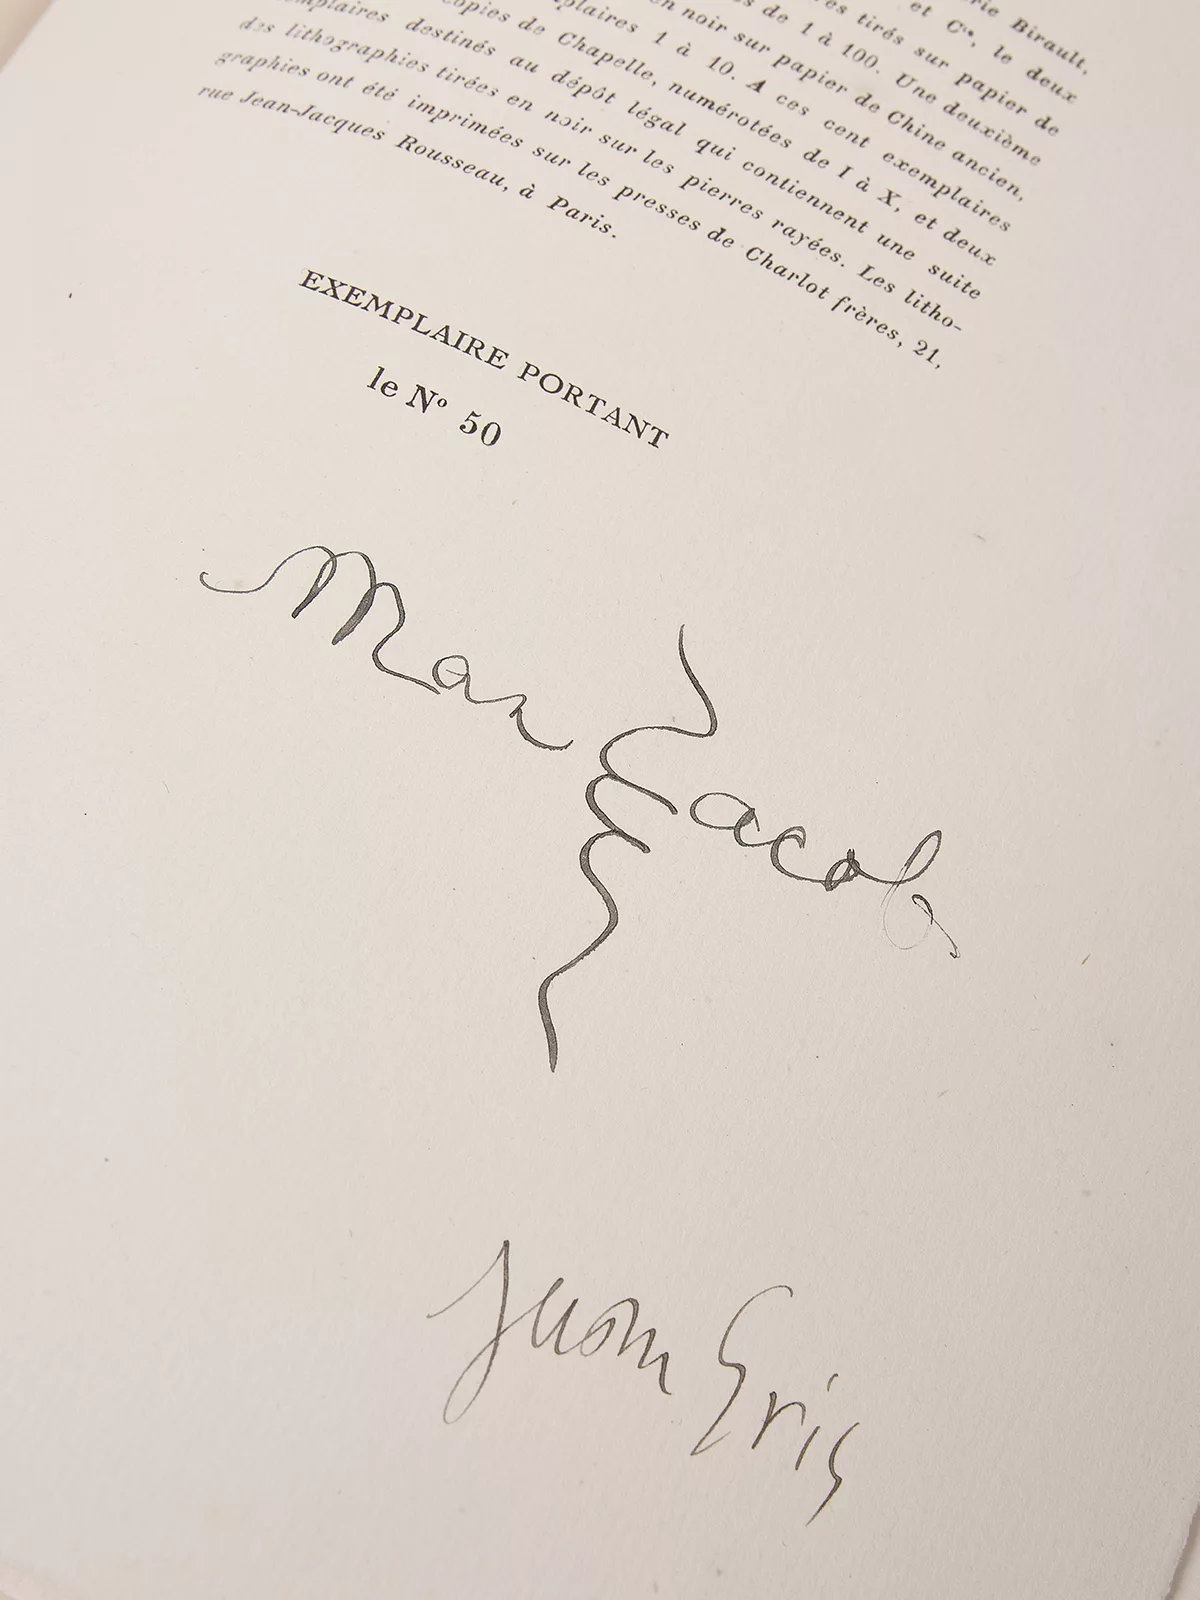 rie Birault,
et Cie, le deux
res tirés sur papier de
s de 1 à 100. Une deuxième
en noir sur papier de Chine ancien,
plaires 1 à 10. A ces cent exemplaires
copies de Chapelle, numérotées de I à X, et deux
emplaires destinés au dépôt légal qui contiennent une suite
des lithographies tirées en noir sur les pierres rayées. Les litho-
graphies ont été imprimées sur les presses de Charlot frères, 21,
rue Jean-Jacques Rousseau, à Paris.
EXEMPLAIRE PORTANT
le No 50
Max Jacob
Juan Gris